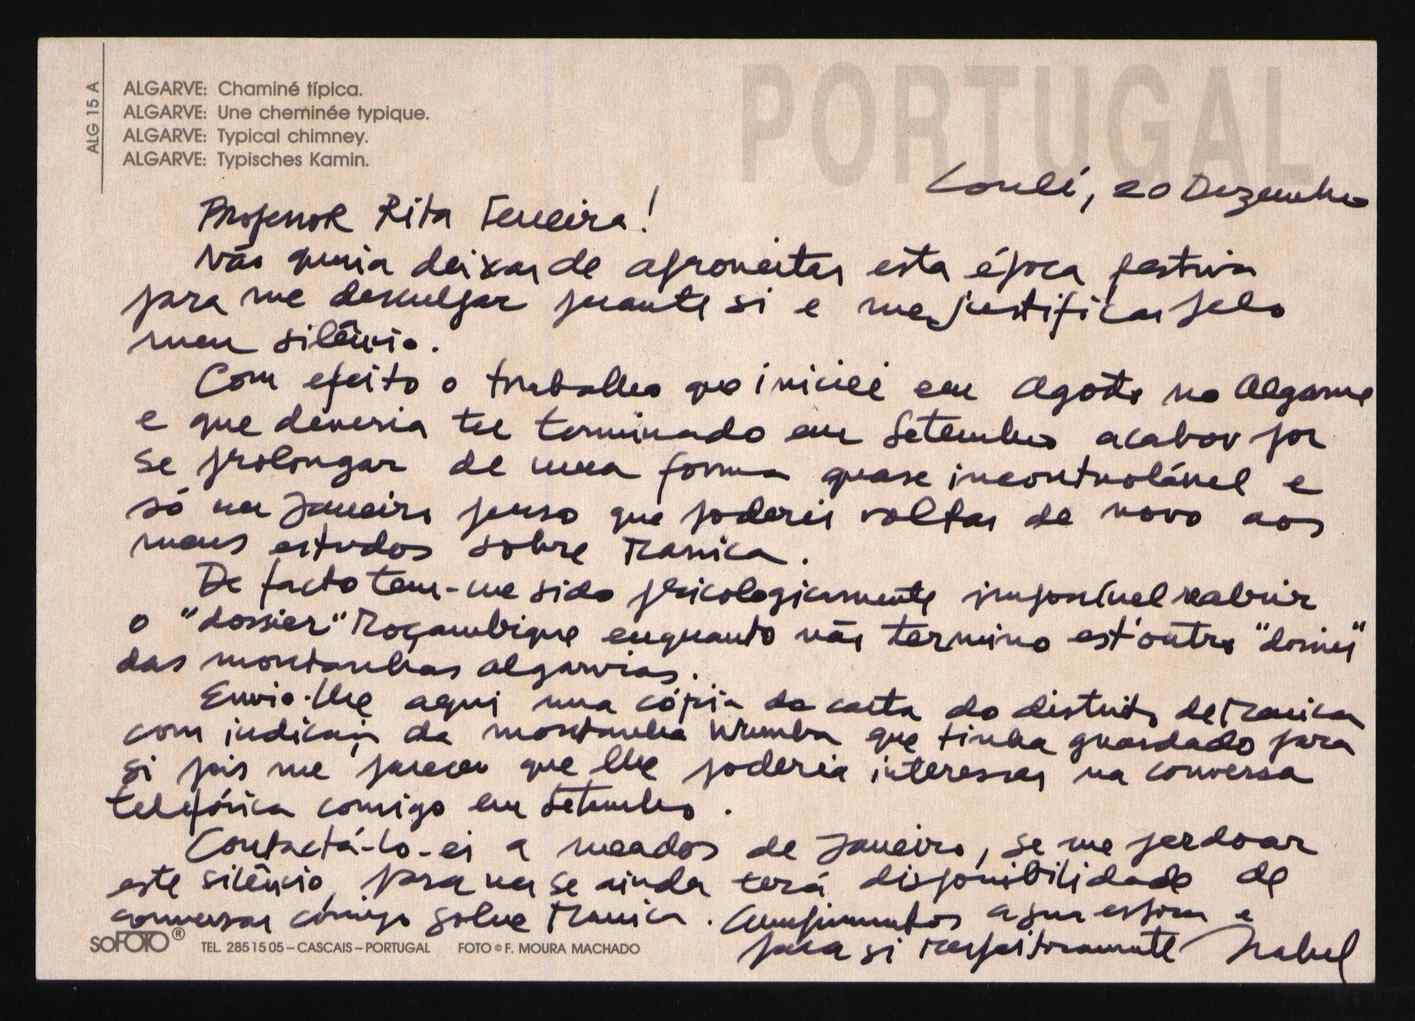 PORTUGAL
ALG 15 A
ALGARVE: Chaminé típica.
ALGARVE: Une cheminée typique.
ALGARVE: Typical chimney.
ALGARVE: Typisches Kamin.
Loulé, 20 Dezembro
Professor Rita Ferreira!
Não queria deixar de aproveitar esta época festiva
para me desculpar perante si e me justificar pelo
meu silêncio.
Com efeito o trabalho que iniciei em Agosto no Algarve
e que deveria ter terminado em Setembro acabou por
se prolongar de uma forma quase incontrolável e
só em Janeiro penso que poderei voltar de novo aos
meus estudos sobre Manica.
De facto tem-me sido psicologicamente impossível reabrir
o "dossier" Moçambique enquanto não termino est'outro "dossier"
das montanhas algarvias.
Envio-lhe aqui uma cópia da carta do distrito de Manica
com indicação da montanha que tinha guardado para
si pois me pareceu que lhe poderia interessar na conversa
telefónica comigo em Setembro.
Contactá-lo-ei a meados de Janeiro, se me perdoar
este silêncio, para ver se ainda terá disponibilidade de
conversar comigo sobre Manica. Cumprimentos a sua esposa e
para si respeitosamente Isabel
soFOTO® TEL. 285 15 05 – CASCAIS – PORTUGAL FOTO © F. MOURA MACHADO